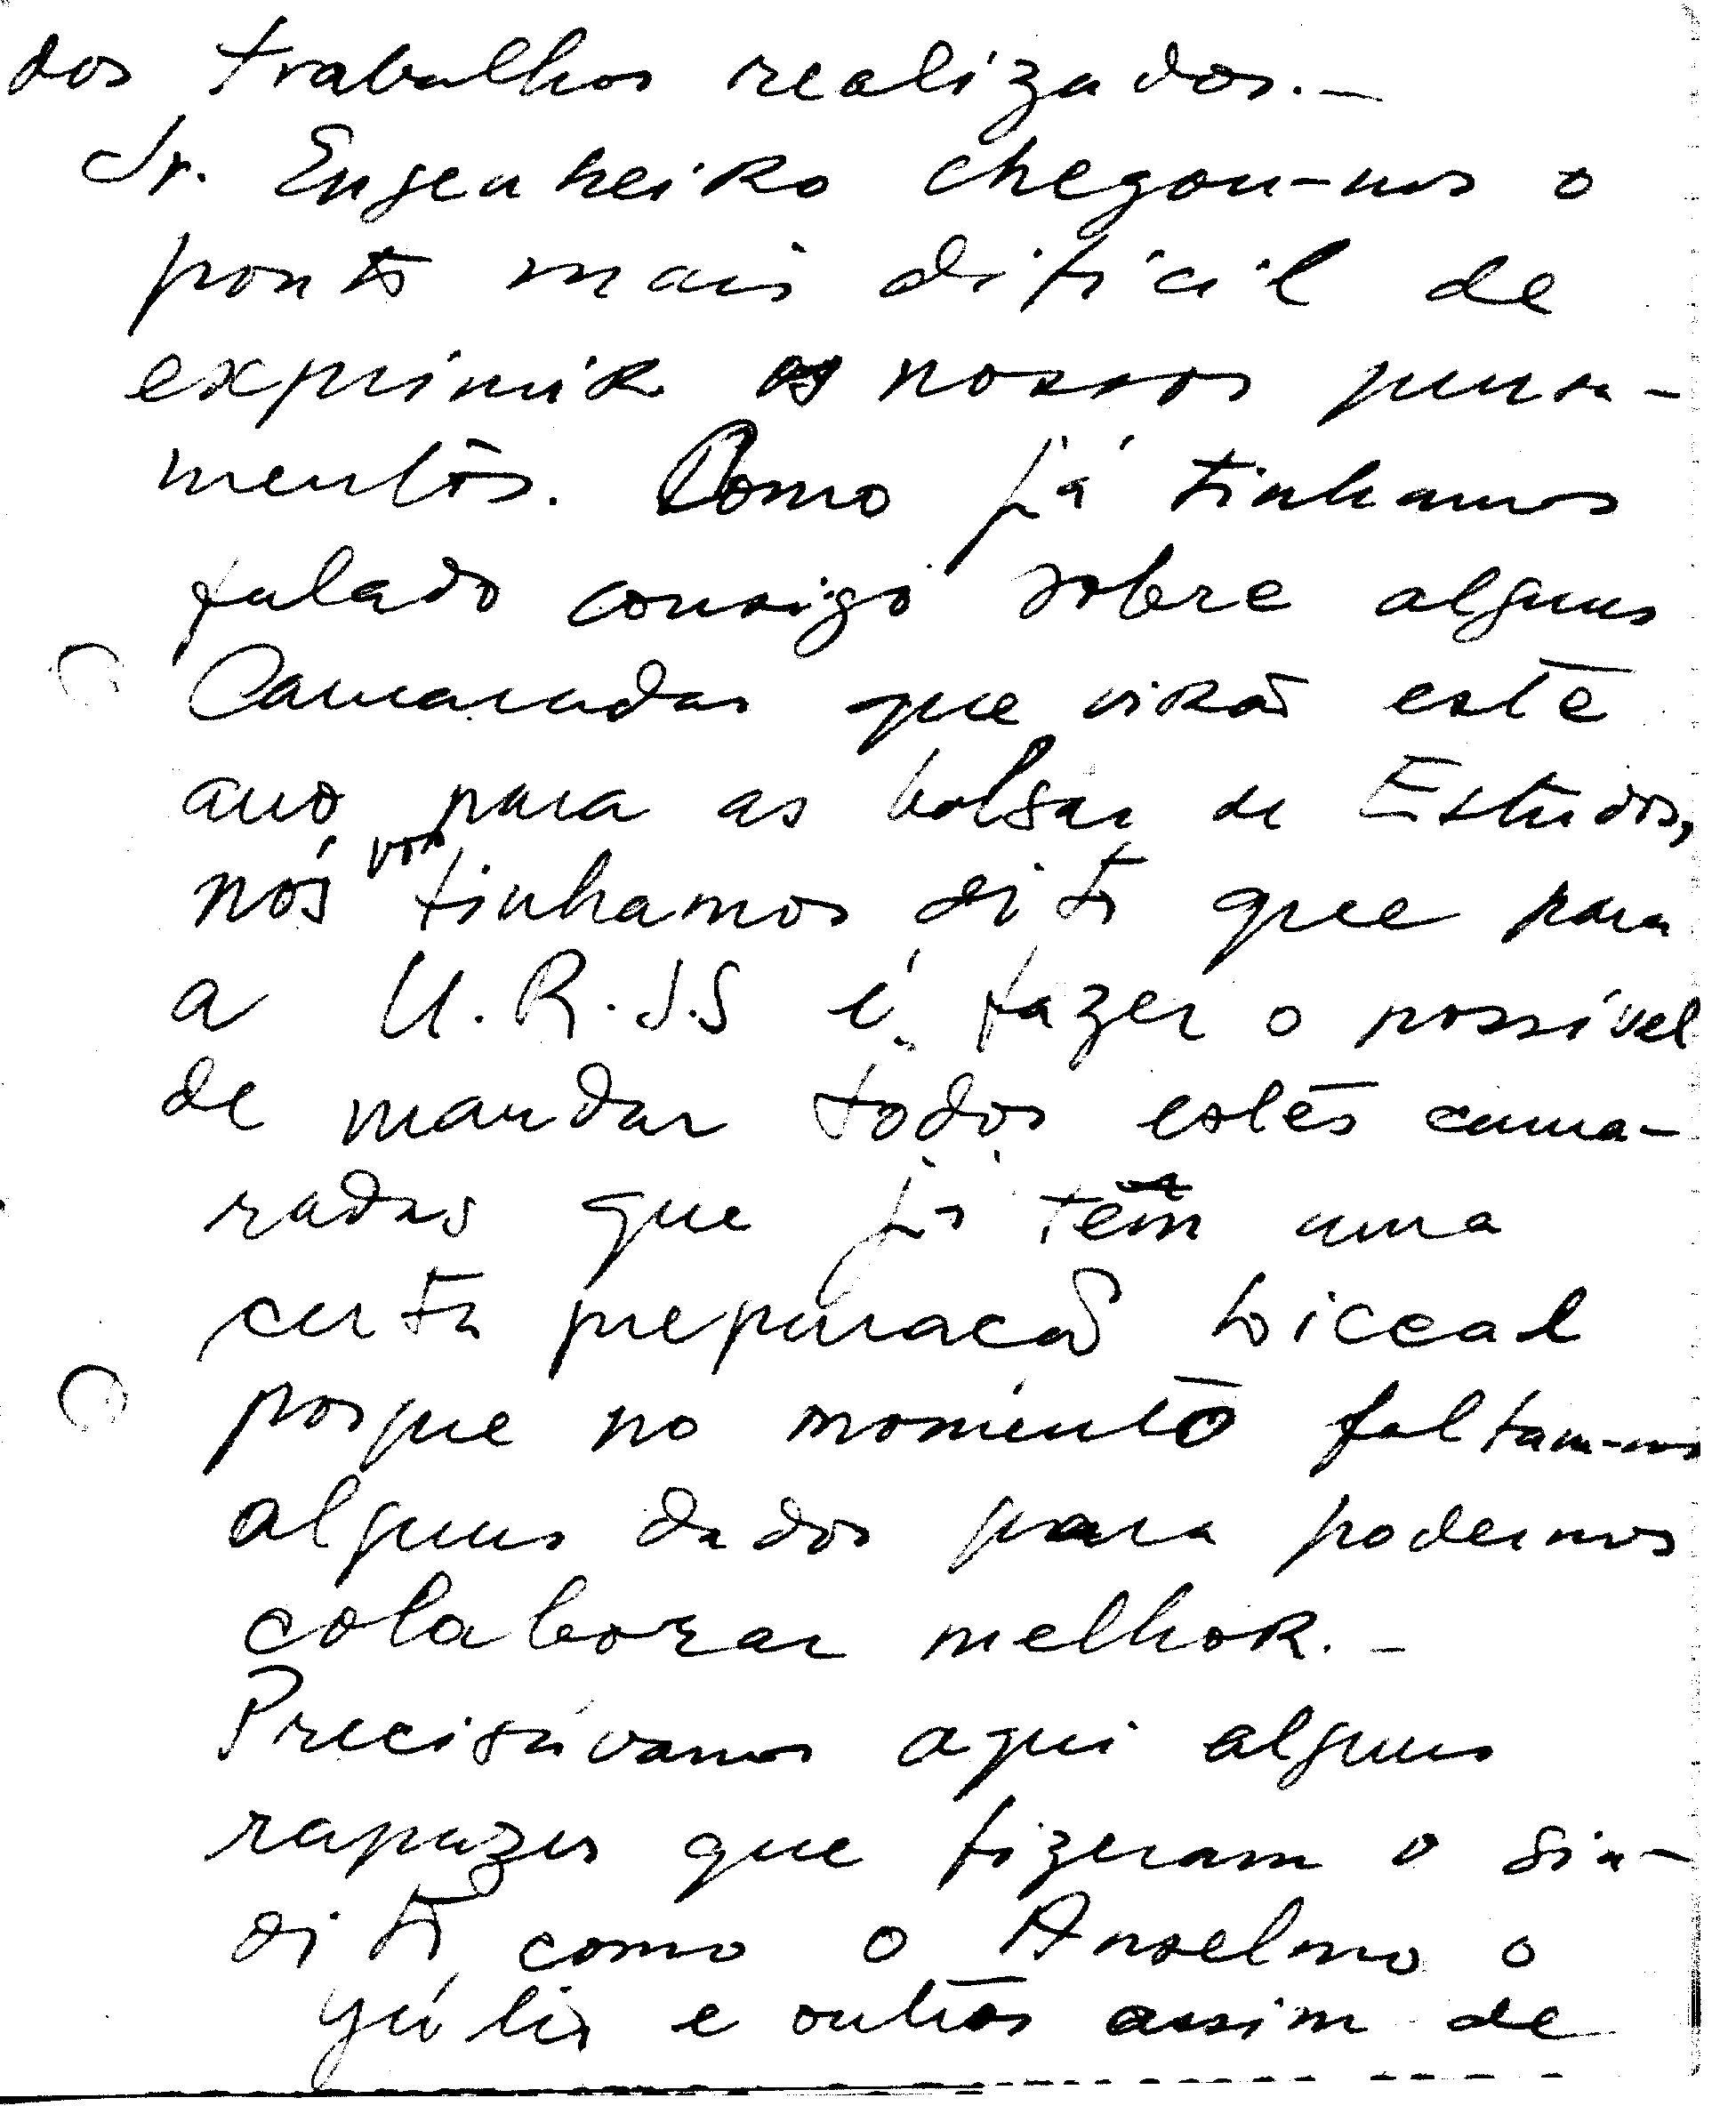 dos trabalhos realizados.—
Sr. Engenheiro chegou-nos o
ponto mais dificil de
exprimir os nossos pensa-
mentos. Como já tinhamos
falado consigo sobre alguns
Camaradas que virão este
ano para as bolsas de Estudos,
nós vos tinhamos dito que para
a U.R.S.S é fazer o possível
de mandar todos estes cama-
radas que já têm uma
certa preparacão Liceal
porque no momento faltam-nos
alguns dados para podermos
colaborar melhor.—
Precisávamos aqui alguns
rapazes que fizeram o sin-
dito como o Anselmo o
Júlio e outros assim de